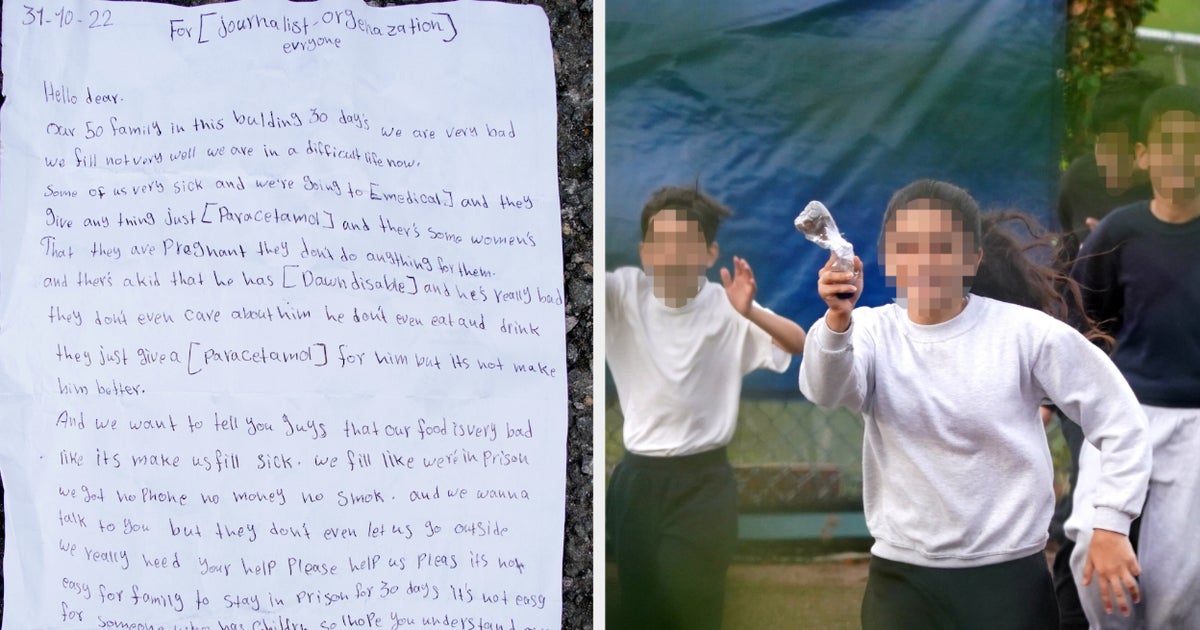 31-10-22
For [journalist-orgenazation]
evryone
Hello dear.
Our 50 family in this bulding 30 day's we are very bad
we fill not very well we are in a difficult life now.
Some of us very sick and we're going to [medical] and they
give any thing just [Paracetamol] and ther's some women's
That they are Pregnant they don't do anything for them.
and ther's a kid that he has [Dawn disable] and he's really bad
they don't even care about him he don't even eat and drink
they just give a [paracetamol] for him but its not make
him better.
And we want to tell you guys that our food is very bad
like its make us fill sick. we fill like we're in prison
we got no Phone no money no smok. and we wanna
talk to you but they don't even let us go outside
we really need your help Please help us Pleas its not
easy for family to stay in Prison for 30 days it's not easy
for someone who has childrn so I hope you understand